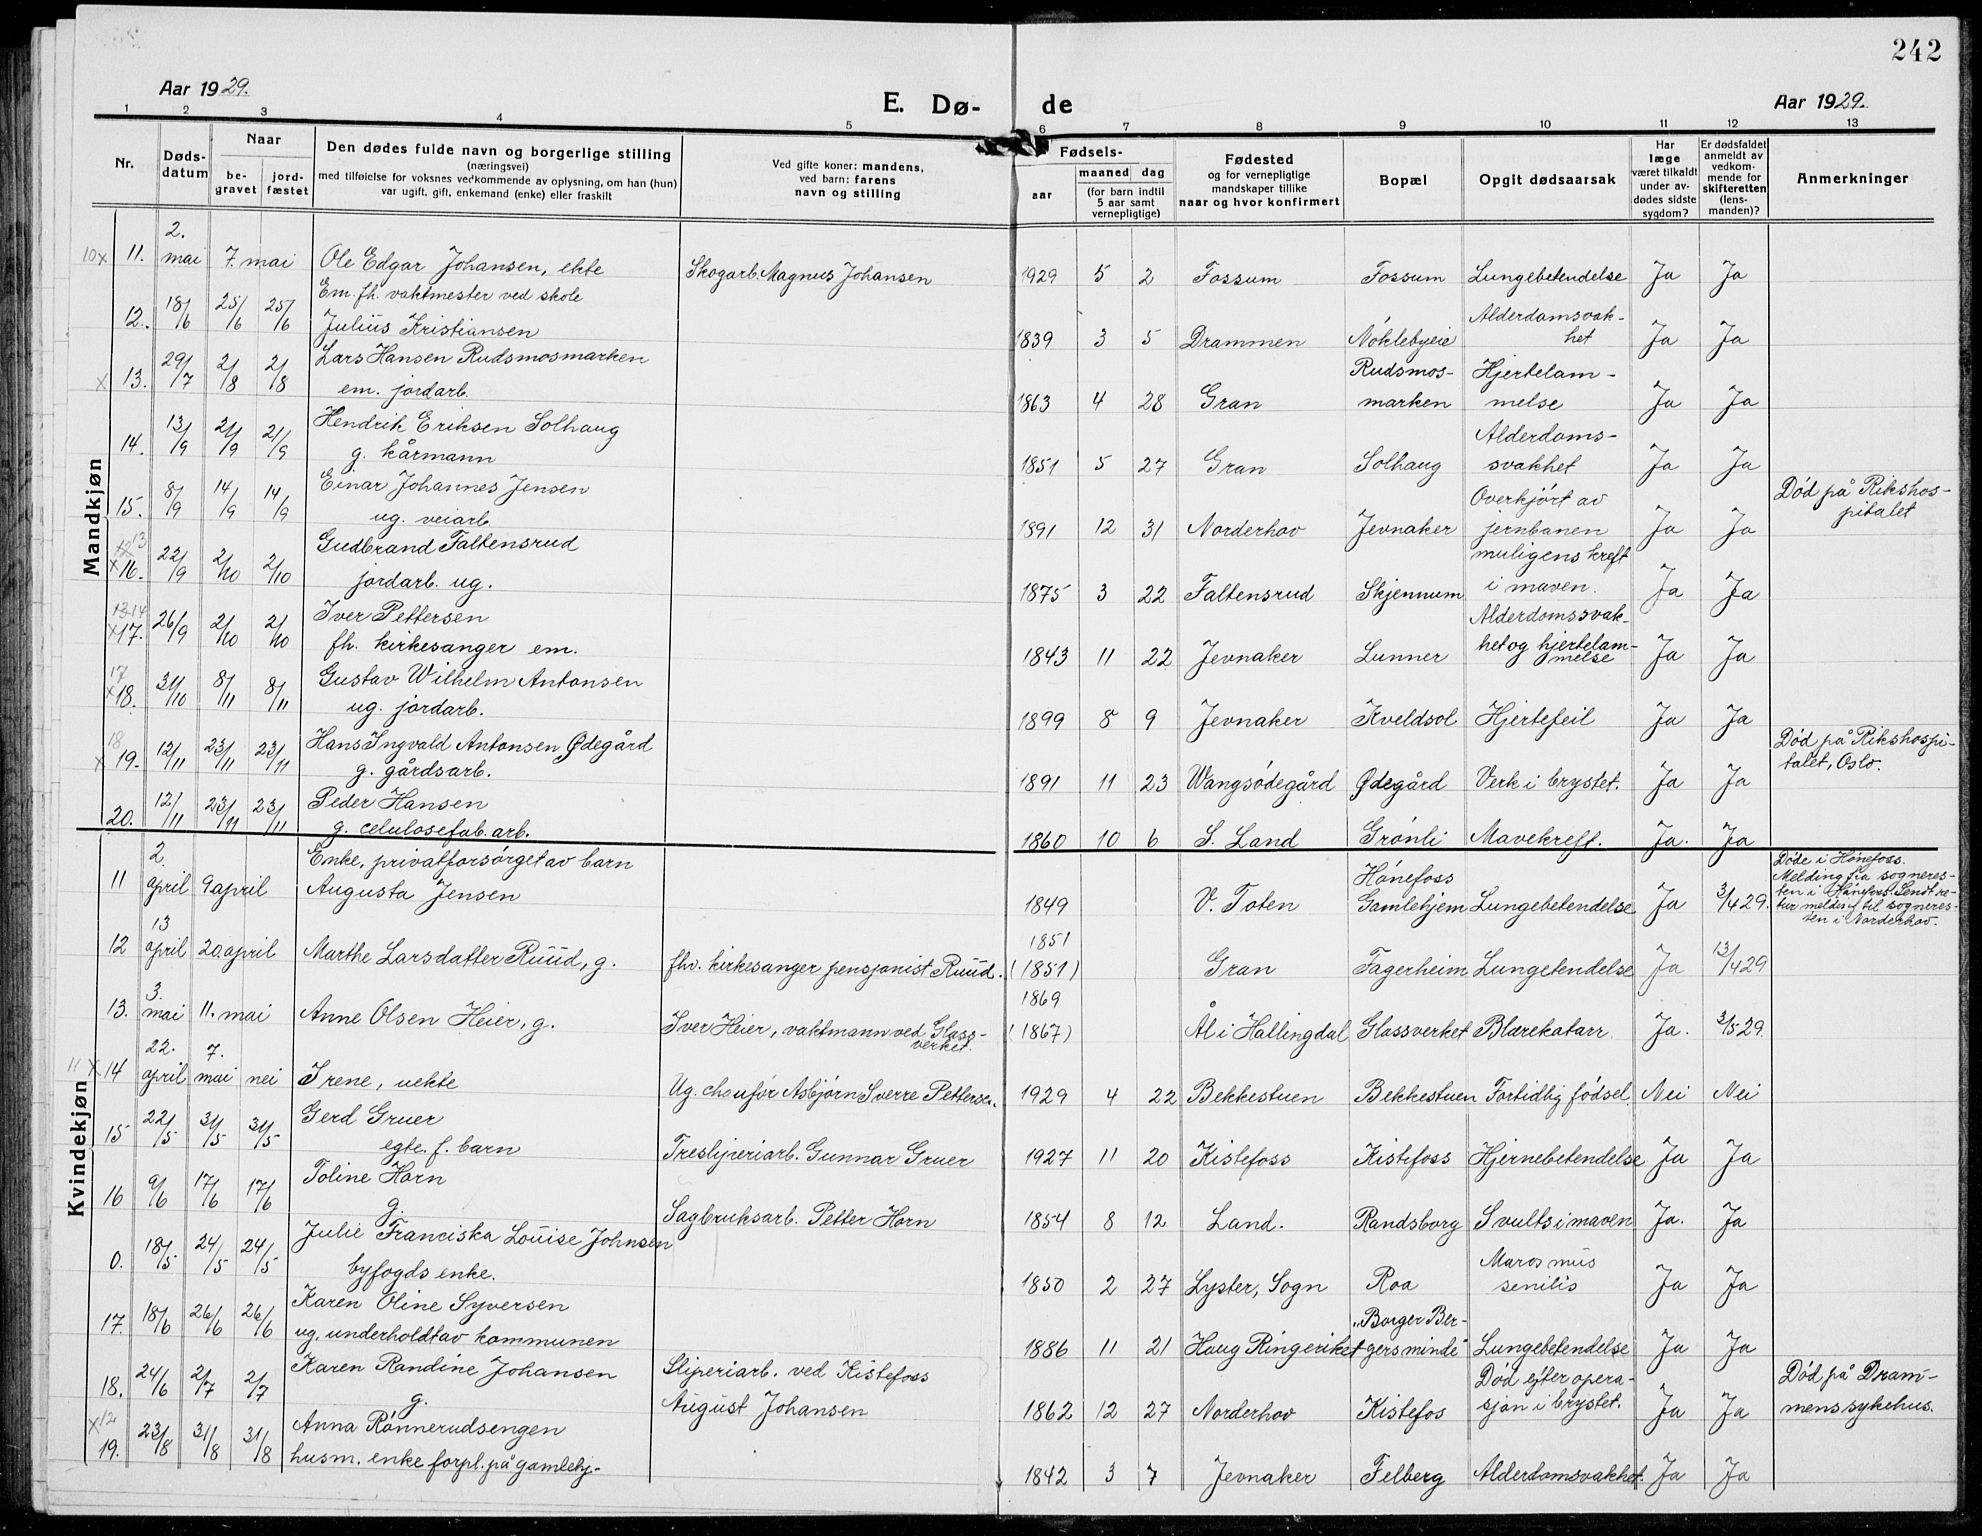 242
Aar 1929.
E. Dø- de
Aar 1929.
1 2 3 4 5 6 7 8 9 10 11 12 13
Nr.
Døds-
datum
Naar
be-
gravet
jord-
fæstet
Den dødes fulde navn og borgerlige stilling
(næringsvei)
med tilføielse for voksnes vedkommende av oplysning, om han (hun)
var ugift, gift, enkemand (enke) eller fraskilt
Ved gifte koner: mandens,
ved barn: farens
navn og stilling
Fødsels-
aar
maaned dag
(for barn indtil
5 aar samt
vernepligtige)
Fødested
og for vernepligtige
mandskaper tillike
naar og hvor konfirmert
Bopæl
Opgit dødsaarsak
Har
læge
været tilkaldt
under av-
dødes sidste
sygdom?
Er dødsfaldet
anmeldt av
vedkom-
mende for
skifteretten
(lens-
manden)?
Anmerkninger
Mandkjøn
2.
10x 11. mai 7. mai Ole Edgar Johansen, ekte Skogarb. Magnus Johansen 1929 5 2 Fossum Fossum Lungebetendelse Ja Ja
Em. fh. vaktmester ved skole Alderdomsvak-
12. 18/6 25/6 25/6 Julius Kristiansen 1839 3 5 Drammen Nøklebyeie het Ja Ja
Lars Hansen Rudsmosmarken Rudsmos- Hjertelam-
x 13. 29/7 2/8 2/8 em. jordarb. 1863 4 28 Gran marken melse Ja Ja
Hendrik Eriksen Solhaug Alderdoms-
14. 13/9 21/9 21/9 g. kårmann 1851 5 27 Gran Solhaug svakhet Ja Ja
Einar Johannes Jensen Overkjørt av Død på Rikshos-
15. 8/9 14/9 14/9 ug. veiarb. 1891 12 31 Norderhov Jevnaker jernbanen Ja Ja pitalet
13 Gudbrand Faltensrud muligens kreft
x 16. 22/9 2/10 2/10 jordarb. ug. 1875 3 22 Faltensrud Skjennum i maven. Ja Ja
13 14 Iver Pettersen Alderdomssvak-
x 17. 26/9 2/10 2/10 fh. kirkesanger em. 1843 11 22 Jevnaker Lunner het og hjertelam- Ja Ja
melse
17 Gustav Wilhelm Antonsen
x 18. 31/10 8/11 8/11 ug. jordarb. 1899 8 9 Jevnaker Kveldsol Hjertefeil Ja Ja
18 Hans Ingvald Antonsen Ødegård Død på Rikshospi-
x 19. 12/11 23/11 23/11 g. gårdsarb. 1891 11 23 Wangsødegård Ødegård Verk i brystet. Ja Ja talet, Oslo.
Peder Hansen
20. 12/11 23/11 23/11 g. celulosefab. arb. 1860 10 6 S. Land Grønli Mavekreft. Ja. Ja
Kvindekjøn
2. Enke, privatforsørget av barn Hønefoss Døde i Hønefoss.
11 april 9 april Augusta Jensen 1849 V. Toten Gamlehjem Lungebetendelse Ja 3/4 29. Melding fra sogneres-
ten i Hønefoss. Sendt re-
tur meldin til sogneres-
ten i Norderhov.
13 1851
12 april 20. april Marthe Larsdatter Ruud, g. fhv. kirkesanger pensjonist Ruud. (1851) Gran Fagerheim Lungetendelse Ja 13/4 29
3. 1869
13. mai 11. mai Anne Olsen Heier, g. Iver Heier, vaktmann ved Glass- (1867) Ål i Hallingdal Glassverket Blærekatarr. Ja. 3/5 29.
verket.
22. 7.
11 x 14 april mai nei Irene, uekte Ug. chauför Asbjørn Sverre Pettersen. 1929 4 22 Bekkestuen Bekkestuen Fortidlig fødsel. Nei Nei
Gerd Gruer
15 22/5 31/5 31/5 egte. f. barn Tresliperiarb. Gunnar Gruer 1927 11 20 Kistefoss Kistefoss Hjernebetendelse Ja Ja
Toline Horn
16 9/6 17/6 17/6 g. Sagbruksarb. Petter Horn 1854 8 12 Land. Randsborg Svulst i maven Ja. Ja
Julie Franciska Louise Johnsen Marosmus
0. 18/5 24/5 24/5 byfogds enke. 1850 2 27 Lyster, Sogn Roa senilis Ja Ja
Karen Oline Syversen "Borger Ber-
17. 18/6 26/6 26/6 ug. underholdt av kommunen 1886 11 21 Haug Ringeriket gersminde" Lungebetendelse Ja Ja
Karen Randine Johansen Sliperiarb. ved Kistefoss Død efter opera- Død på Dram-
18. 24/6 2/7 2/7 g. August Johansen 1862 12 27 Norderhov Kistefos sjon i brystet. Ja Ja mens sykehus.
x 12 Anna Rønnerudsengen
19. 23/8 31/8 31/8 husm. enke forpl. på gamlehj- 1842 3 7 Jevnaker Felberg Alderdomsvakhet. Ja Ja